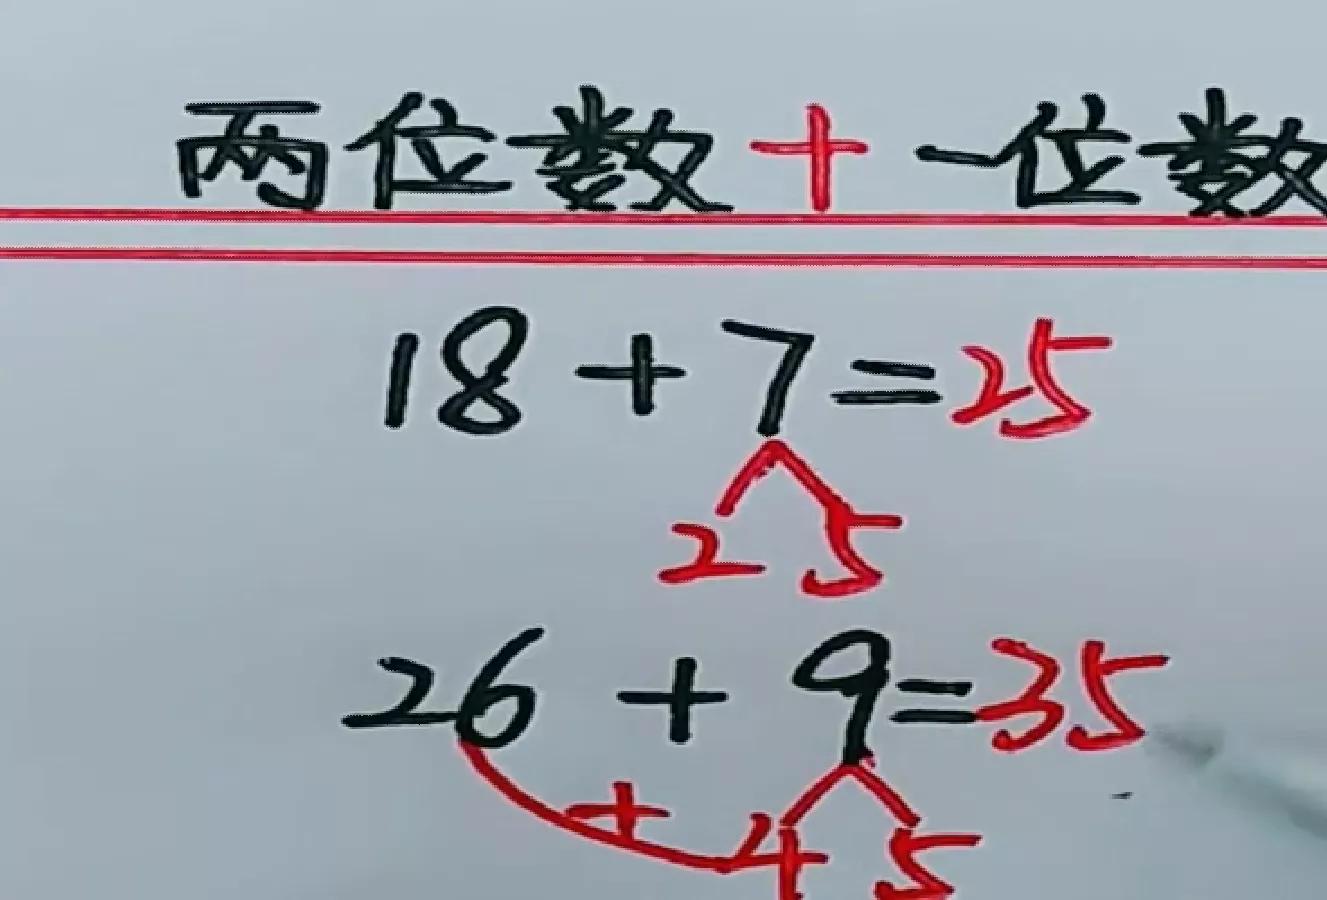 两位数+一位数
18+7=25
2 5
26+9=35
+ 4 5